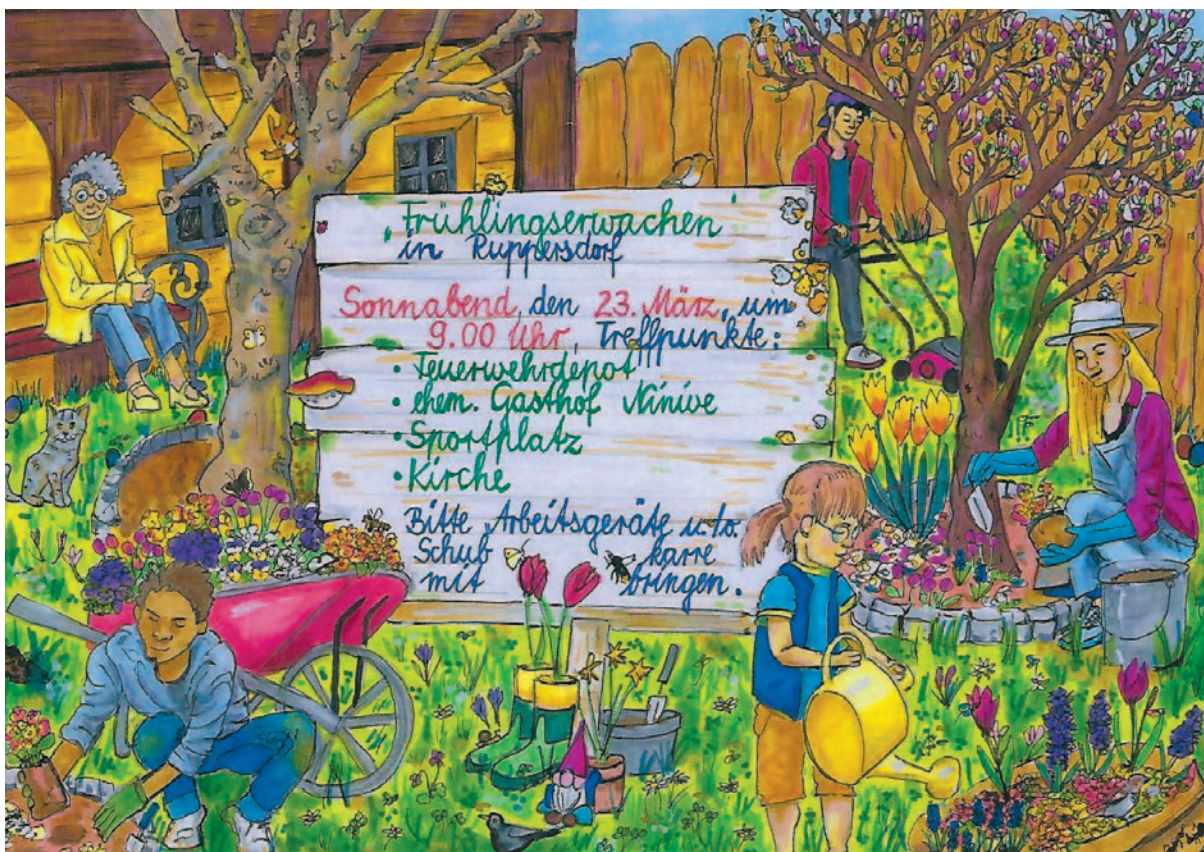 "Frühlingserwachen"
in Ruppersdorf
Sonnabend, den 23. März, um
9.00 Uhr, Treffpunkte:
• Feuerwehrdepot
• ehem. Gasthof Ninive
• Sportplatz
• Kirche
Bitte Arbeitsgeräte u./o.
Schub karre
mit bringen.